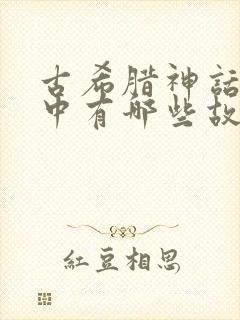 古希腊神話
中有哪些故
紅豆相思